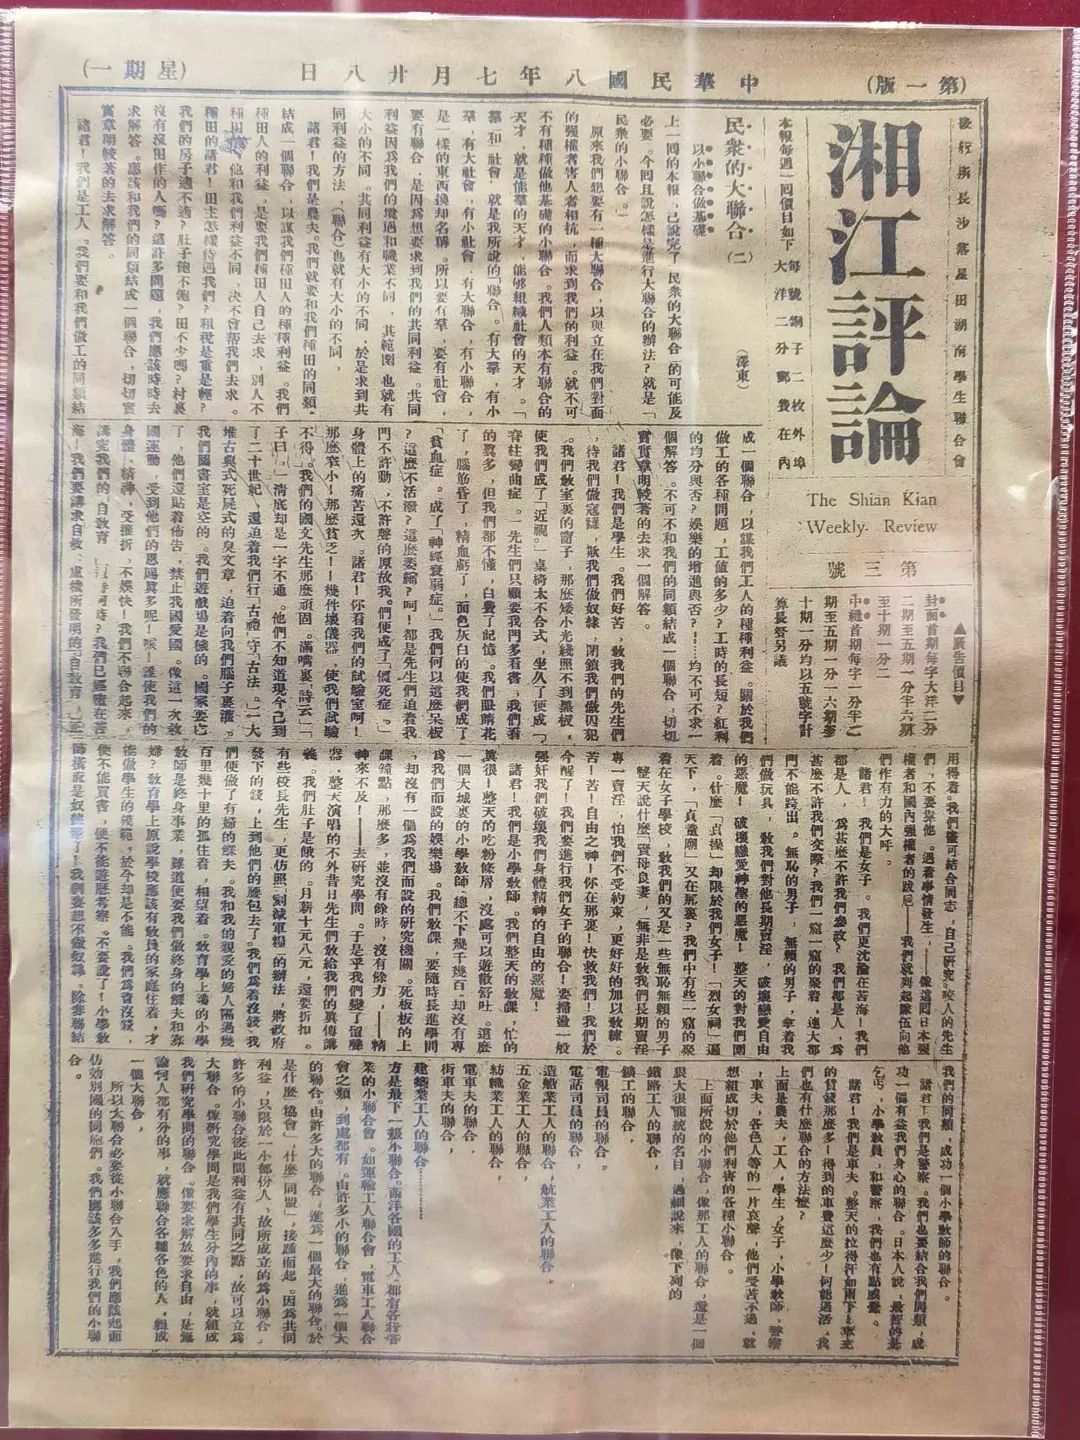 (第一版)
中華民國八年七月廿八日
(星期一)
發行所長沙落星田湖南學生聯合會
湘江評論
本報每週一回價目如下
每號銅子二枚外埠
大洋二分郵費在內
The Shian Kian
Weekly Review
第三號
▲廣告價目▼
封面首期每字大洋二分
二期至五期一分半六期
至十期一分二
中縫首期每字一分半二
期至五期一分一六期至
十期一分均以五號字計
算長登另議
民衆的大聯合(二)
(澤東)
以小聯合做基礎
上一回的本報、已說完了「民衆的大聯合」的可能及
必要。今回且說怎樣是進行大聯合的辦法?就是「
民衆的小聯合。」
原來我們想要有一種大聯合、以與立在我們對面
的強權者害人者相抗、而求到我們的利益。就不可
不有種種做他基礎的小聯合。我們人類本有聯合的
天才、就是能羣的天才、能够組織社會的天才。「
羣」和「社會」就是我所說的「聯合。」有大羣、有小
羣、有大社會、有小社會、有大聯合、有小聯合、
是一樣的東西換却名稱。所以要有羣、要有社會、
要有聯合、是因爲想要求到我們的共同利益。共同
利益因爲我們的境遇和職業不同、其範圍也就有
大小的不同。共同利益有大小的不同、於是求到共
同利益的方法、(聯合)也就有大小的不同、
諸君!我們是農夫。我們就要和我們種田的同類、
結成一個聯合、以謀我們種田人的種種利益。我們
種田人的利益、是要我們種田人自己去求、別人不
種田的、他和我們利益不同、決不會幫我們去求。
種田的諸君!田主怎樣待遇我們?租稅是重是輕?
我們的房子適不適?肚子飽不飽?田不少嗎?村裏
沒有沒田作的人嗎?這許多問題、我們應該時時去
求解答。應該和我們的同類結成一個聯合、切切實
實章明較著的去求解答。
諸君!我們是工人。我們要和我們做工的同類結
成一個聯合、以謀我們工人的種種利益。關於我們
做工的各種問題、工値的多少?工時的長短?紅利
的均分與否?娛樂的增進與否?……均不可不求一
個解答。不可不和我們的同類結成一個聯合、切切
實實章明較著的去求一個解答。
諸君!我們是學生。我們好苦、敎我們的先生們
、待我們做寇讎、欺我們做奴隸、閉鎖我們做囚犯
。我們敎室裏的窗子、那麽矮小光綫照不到黑板、
使我們成了「近視。」桌椅太不合式、坐久了便成「
脊柱彎曲症。」先生們只顧要我們多看書、我們看
的眞多、但我們都不懂、白費了記憶。我們眼睛花
了、腦筋昏了、精血虧了、面色灰白的使我們成了
「貧血症。」成了「神經衰弱症。」我們何以這麽呆板
?這麽不活潑?這麽萎縮?呵!都是先生們迫着我
們不許動、不許聲的原故。我們便成了「僵死症。」
身體上的痛苦還次。諸君!你看我們的試驗室呵!
那麽窄小!那麽貧乏!!幾件壞儀器、使我們試驗
不得。我們的國文先生那麽頑固。滿嘴裏「詩云」「
子曰、」淸底却是一字不通。他們不知道現今已到
了二十世紀、還迫着我們行「古禮」守「古法。」一大
堆古典式死屍式的臭文章、迫着向我們腦子裏灌。
我們圖書室是空的。我們遊戲場是穢的。國家要亡
了、他們還貼着佈告、禁止我國愛國。像這一次救
國運動、受到他們的恩賜眞多呢!唉!誰使我們的
身體、精神、受摧折、不娛快!我們不聯合起來、
講究我們的「自敎育」
海!我們要講求自救、盧梭所發明的「自敎育、」正
用得着。我們儘可結合同志、自己研究。咬人的先生
們、不要靠他。遇着事情發生、——像這回日本強
權者和國內強權者的跋扈——我們就列起隊伍向他
們作有力的大呼。
諸君!我們是女子。我們更沈淪在苦海!我們
都是人、爲甚麽不許我們參政?我們都是人、爲
甚麽不許我們交際?我們一窟一窟的聚着、連大都
門不能跨出。無恥的男子、無賴的男子、拿着我
們做玩具、敎我們對他長期賣淫、破壞戀愛自由
的惡魔!破壞戀愛神聖的惡魔!整天的對我們圍
着。什麽「貞操」却限於我們女子!「烈女祠」遍
天下、「貞童廟」又在那裏?我們中有些一窟的聚
着在女子學校、敎我們的又是一些無恥無賴的男子
整天說什麽「賢母良妻、」無非是敎我們長期賣淫
專一賣淫、怕我們不受約束、更好好的加以敎練。
苦!苦!自由之神!你在那裏!快救我們!我們於
今醒了!我們要進行我們女子的聯合!要掃蕩一般
強奸我們破壞我們身體精神的自由的惡魔!
諸君!我們是小學敎師。我們整天的敎課、忙的
眞很!整天的吃粉條屑、沒處可以遊散舒吐。這麽
一個大城裏的小學敎師、總不下幾千幾百、却沒有專
爲我們而設的娛樂場。我們敎課、要隨時長進學問
、却沒有一個爲我們而設的研究機關。死板板的上
課鐘點、那麽多、並沒有餘時、沒有餘力、——精
神來不及!——去研究學問。于是乎我們變了留聲
器、整天演唱的不外昔日先生們敎給我們的眞傳講
義。我們肚子是餓的。月薪十元八元、還要折扣。
有些校長先生、更仿照「剋減軍糧」的辦法、將政府
發下的錢、上到他們的腰包去了。我們爲着沒錢、我
們便做了有婦的鰥夫。我和我的親愛的婦人隔過幾
百里幾十里的孤住着、相望着。敎育學上講的小學
敎師是終身事業、難道便要我們做終身的鰥夫和寡
婦?敎育學上原說學校應該有敎員的家庭住着、才
能做學生的模範、於今却是不能。我們爲着沒錢、
便不能買書、便不能遊歷考察。不要說了!小學敎
師橫直是奴隸罷了!我們要想不做奴隸、除非聯結
我們的同類、成功一個小學敎師的聯合。
諸君!我們是警察。我們也要結合我們同類、成
功一個有益我們身心的聯合。日本人說、最苦的是
乞丐、小學敎員、和警察、我們也有點感覺。
諸君!我們是車夫。整天的拉得汗如雨下!車主
的賃錢那麽多!得到的車費這麽少!何能過活、我
們也有什麽聯合的方法麽?
上面是農夫、工人、學生、女子、小學敎師、警察
、車夫、各色人等的一片哀聲、他們受苦不過、就
想組成切於他們利害的各種小聯合。
上面所說的小聯合、像那工人的聯合、還是一個
狠大很籠統的名目、過細說來、像下列的
鐵路工人的聯合、
鑛工的聯合、
電報司員的聯合、
電話司員的聯合、
造船業工人的聯合、航業工人的聯合、
五金業工人的聯合、
紡織業工人的聯合、
電車夫的聯合、
街車夫的聯合、
建築業工人的聯合……
方是最下一級小聯合。西洋各國的工人、都有各行各
業的小聯合會。如運輸工人聯合會、電車工人聯合
會之類、到處都有。由許多小的聯合、進爲一個大
的聯合。由許多大的聯合、進爲一個最大的聯合。於
是什麽「協會」、什麽「同盟」、接踵而起。因爲共同
利益、只限於一小部份人、故所成立的爲小聯合、
許多的小聯合彼此間利益有共同之點、故可以立爲
大聯合。像研究學問是我們學生分內的事、就組成
我們研究學問的聯合。像要求解放要求自由、是無
論何人都有分的事、就應聯合各種各色的人、組成
一個大聯合、
所以大聯合必要從小聯合入手、我們應該起而
仿效別國的同胞們。我們應該多多進行我們的小聯
合。